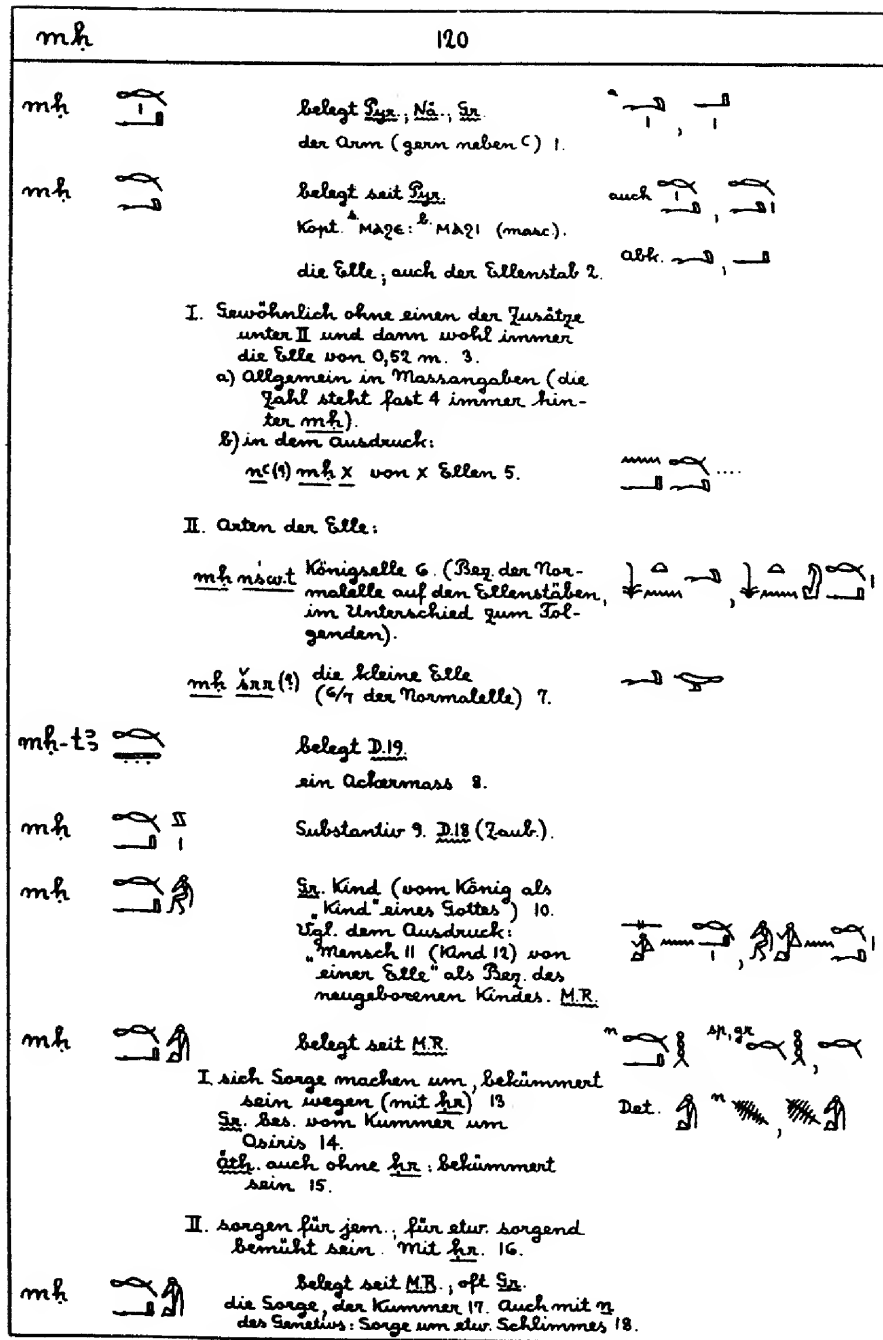 mḥ 120
mḥ belegt Pyr.; Nä.; Gr.
der Arm (gern neben ꜥ) 1.
mḥ belegt seit Pyr. auch
Kopt. a. ⲙⲁϩⲉ: b. ⲙⲁϩⲓ (masc.).
die Elle; auch der Ellenstab 2. abk.
I. Gewöhnlich ohne einen der Zusätze
unter II und dann wohl immer
die Elle von 0,52 m. 3.
a) Allgemein in Massangaben (die
Zahl steht fast 4 immer hin-
ter mḥ).
b) in dem Ausdruck:
nꜥ(?) mḥ x von x Ellen 5.
II. Arten der Elle:
mḥ nśw.t Königselle 6. (Bez. der Nor-
malelle auf den Ellenstäben,
im Unterschied zum Fol-
genden).
mḥ šrr(?) die kleine Elle
(6/7 der Normalelle) 7.
mḥ-tꜣ belegt D.19.
ein Ackermass 8.
mḥ Substantiv 9. D.18 (Zaub.).
mḥ Gr. Kind (vom König als
„Kind" eines Gottes) 10.
Vgl. dem Ausdruck:
„Mensch 11 (Kind 12) von
einer Elle" als Bez. des
neugeborenen Kindes. M.R.
mḥ belegt seit M.R. n sp, gr
I. sich Sorge machen um, bekümmert
sein wegen (mit ḥr) 13 Det. n
Gr. bes. vom Kummer um
Osiris 14.
äth. auch ohne ḥr: bekümmert
sein 15.
II. sorgen für jem.; für etw. sorgend
bemüht sein. Mit ḥr. 16.
mḥ belegt seit M.R.; oft Gr.
die Sorge, der Kummer 17. Auch mit n
des Genetivs: Sorge um etw. Schlimmes 18.